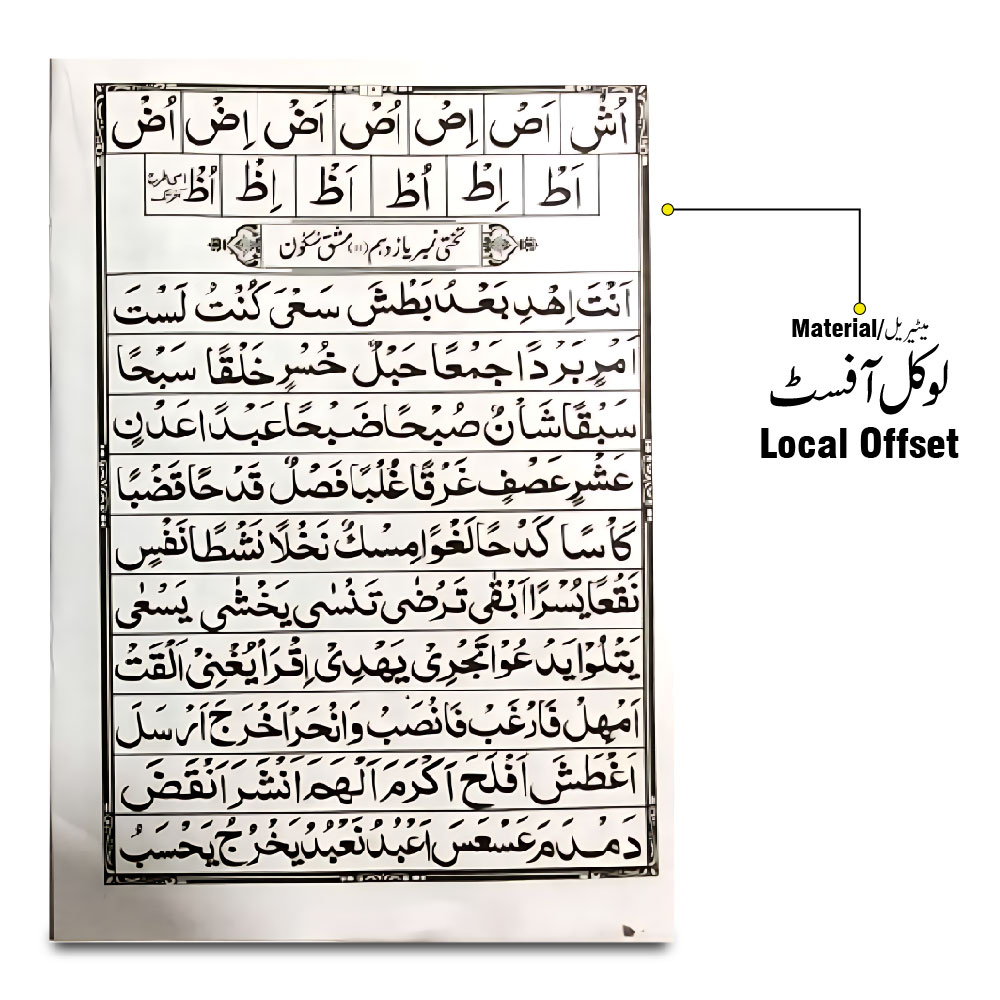 اُشْ اَصْ اِصْ اُصْ اَضْ اِضْ اُضْ
اَطْ اِطْ اُطْ اَظْ اِظْ اُظْ اسی طرح
تختی نمبر یازدہم (۱۱) مشق سُکُون
اَنْتَ اِهْدِ بَعْدُ بَطْشَ سَعْیَ كُنْتُ لَسْتَ
اَمْرٍ بَرْدًا جَمْعًا حَبْلٌ خُسْرٍ خَلْقًا سَبْحًا
سَبْقًا شَاْنٌ صُبْحًا ضَبْحًا عَبْدًا عَدْنٍ
عَشْرٍ عَصْفٍ غَرْقًا غُلْبًا فَصْلٌ قَدْحًا قَضْبًا
كَاْسًا كَدْحًا لَغْوًا مِسْكٌ نَخْلًا نَشْطًا نَفْسٍ
نَقْعًا یُسْرًا اَبْقٰى تَرْضٰى تَنْسٰى یَخْشٰى یَسْعٰى
یَتْلُوْا یَدْعُوْا تَجْرِیْ یَهْدِیْ اِقْرَاْ یُغْنِیْ اَلْقَتْ
اَمْهِلْ فَارْغَبْ فَانْصَبْ وَانْحَرْ اَخْرَجَ اَرْسَلَ
اَغْطَشَ اَفْلَحَ اَكْرَمَ اَلْهَمَ اَنْشَرَ اَنْقَضَ
دَمْدَمَ عَسْعَسَ اَعْبُدُ نَعْبُدُ یَخْرُجُ یَحْسَبُ
میٹیریل/Material
لوکل آفسٹ
Local Offset